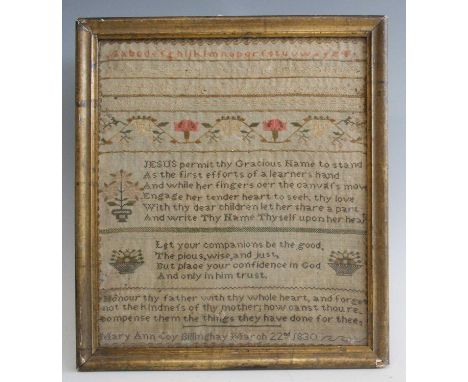 abcdefghijklmnopqrstuvwxyz
JESUS permit thy Gracious Name to stand
As the first efforts of a learners hand
And while her fingers oer the canvass move
Engage her tender heart to seek thy love
With thy dear children let her share a part
And write Thy Name Thyself upon her heart
Let your companions be the good,
The pious, wise, and just,
But place your confidence in God
And only in him trust.
Honour thy father with thy whole heart, and forget
not the kindness of thy mother; how canst thou re
compense them the things they have done for thee
Mary Ann Coy Billinghay March 22nd 1830